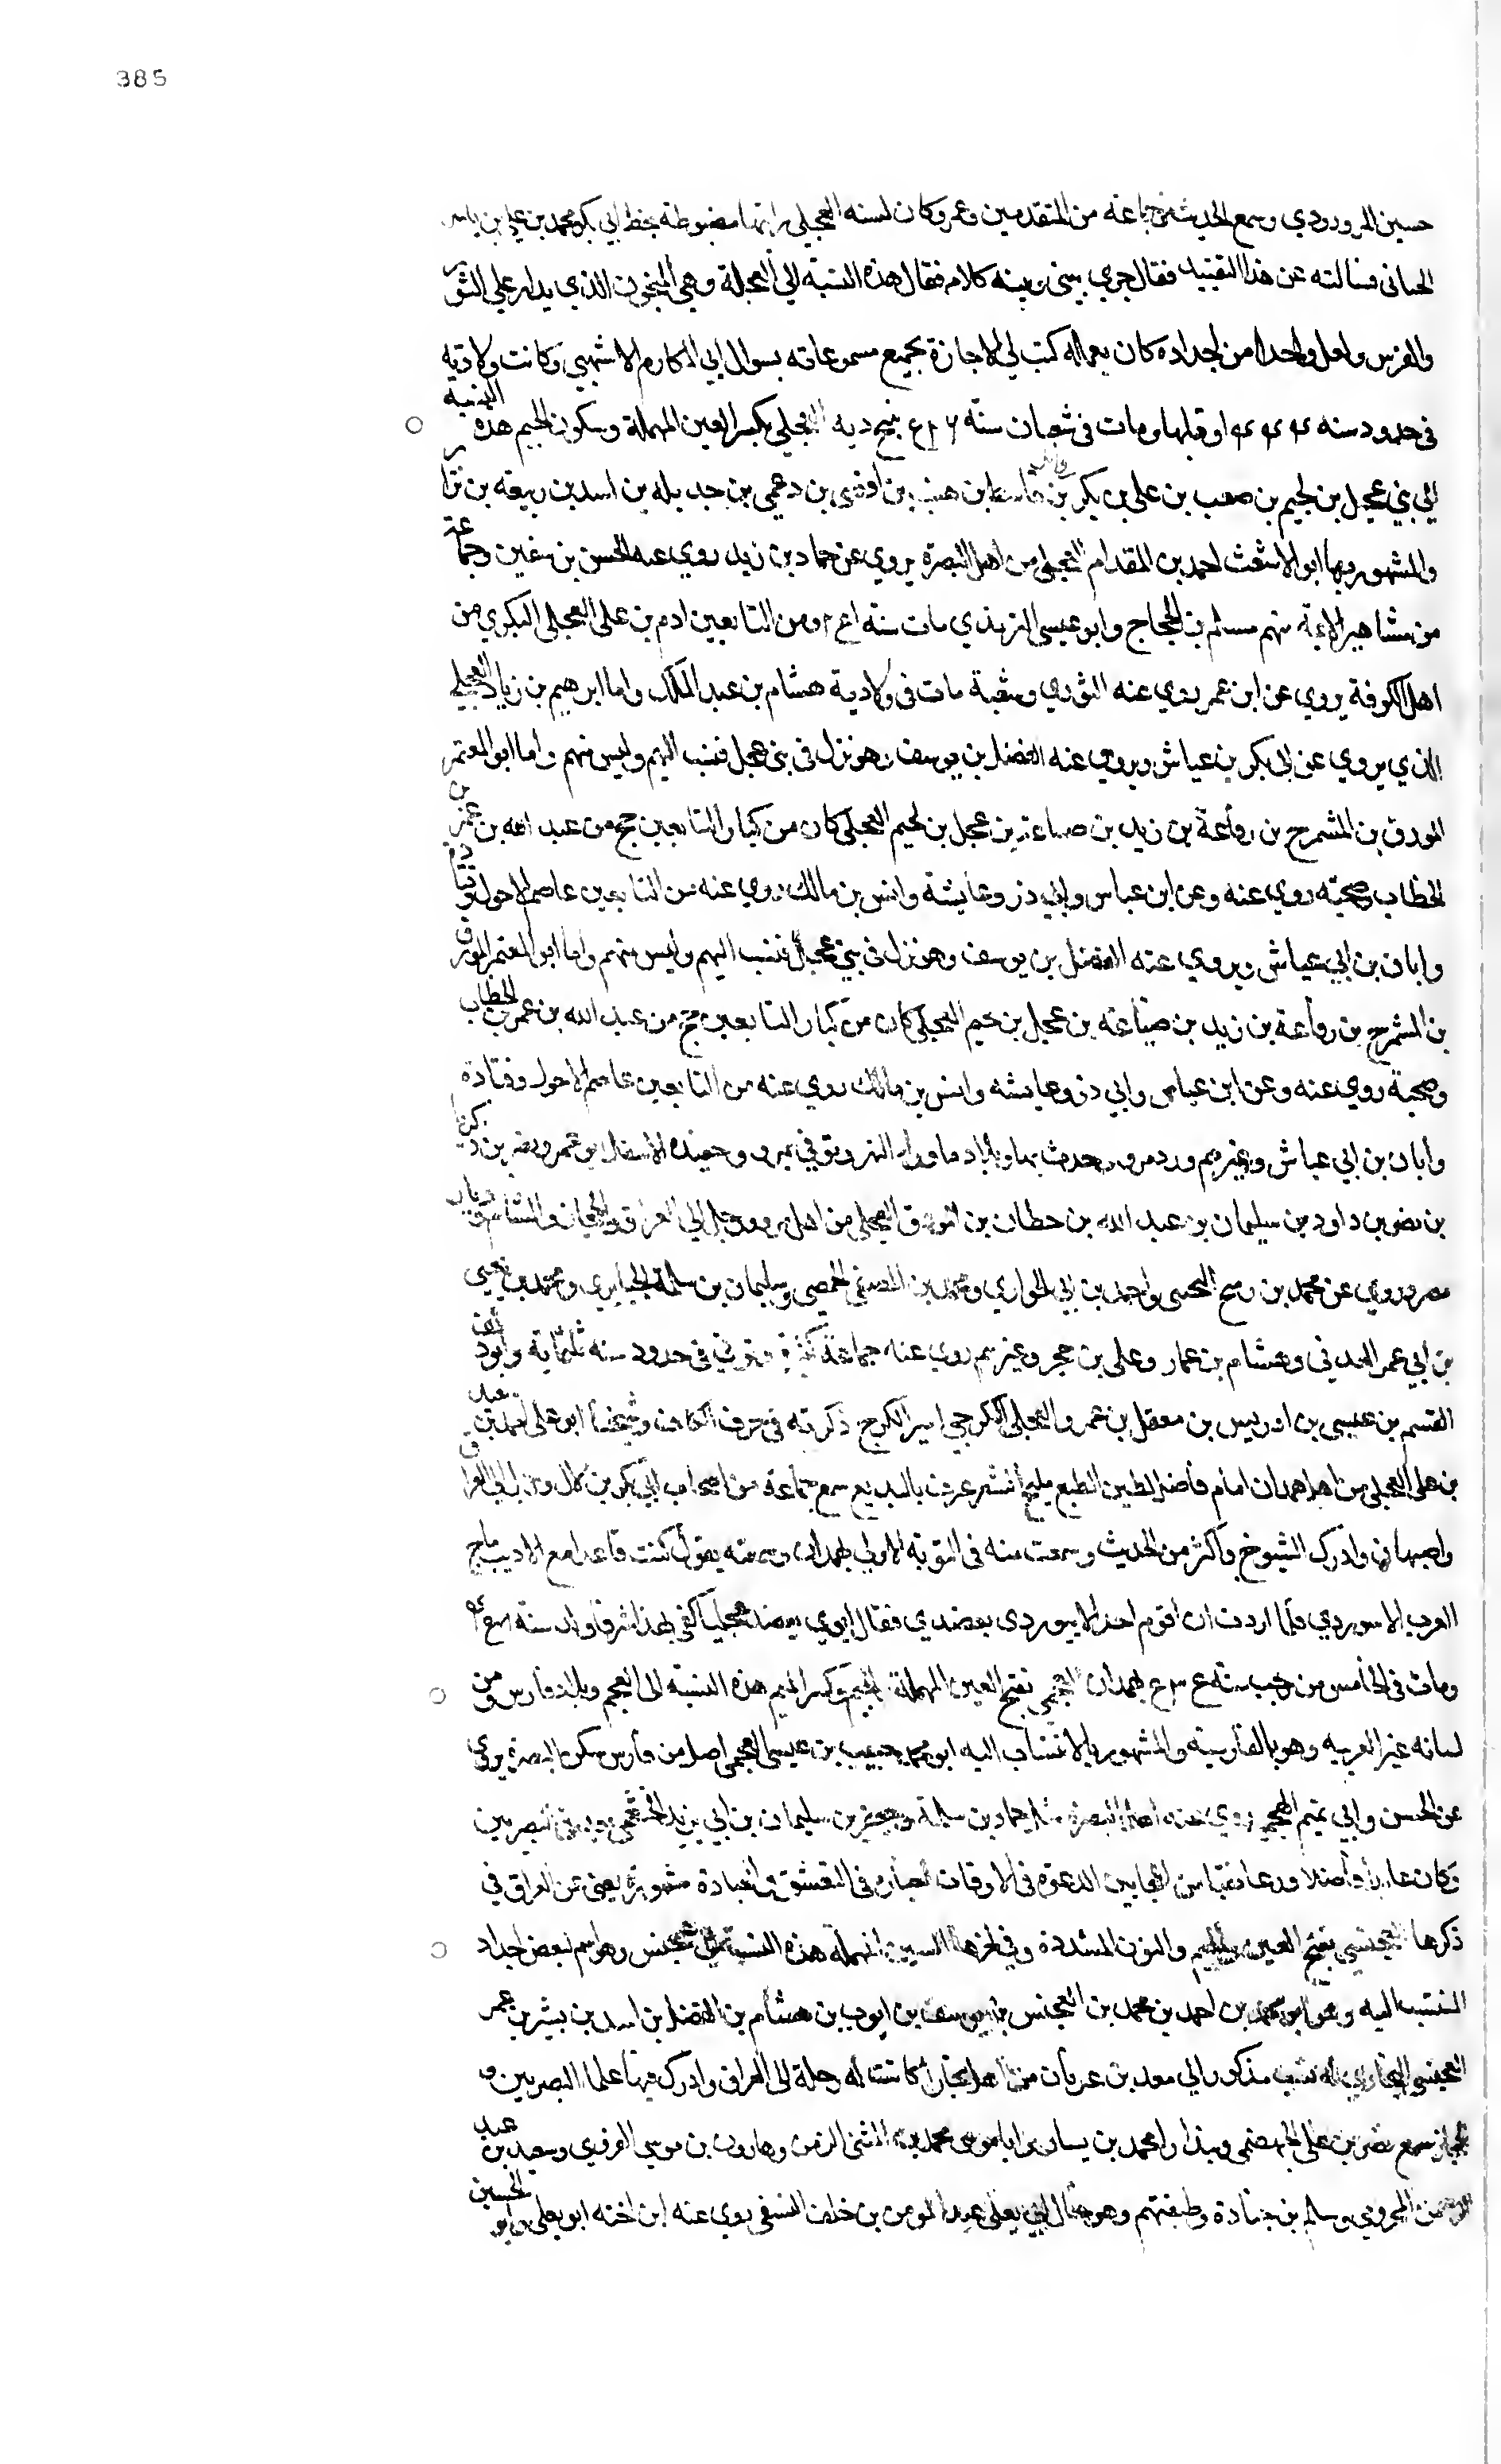 385
حسين المرورودي وسمع الحديث من جماعة من المتقدمين وعمر وكان لسنه العجلي رايتها مضبوطة بخط ابي بكر محمد بن علي بن ياسر
الجياني فسالته عن هذا التقييد فقال جري بيني وبينه كلام فقال هذه النسبة الي العجلة وهي المنجنون الذي يدار علي الثور
والفرس ولعل واحدا من اجداده كان يعمله كتب لي الاجازة بجميع مسموعاته بسوال ابي المكارم الاشهبي وكانت ولادته
في حدود سنه او قبلها ومات في شعبان سنة بنج ديه العجلي بكسر العين المهملة وسكون الجيم هذه النسبة
الي بني عجل بن لجيم بن صعب بن علي بن بكر بن وائل بن قاسط بن هنب بن افصي بن دعمي بن جديله بن اسد بن ربيعة بن نزار
والمشهور بها ابو الاشعث احمد بن المقدام العجلي من اهل البصرة يروي عن حماد بن زيد روي عنه الحسن بن سفين وجماعة
من مشاهير الائمة منهم مسلم بن الحجاج وابو عيسي الترمذي مات سنة ومن التابعين ادم بن علي العجلي البكري من
اهل الكوفة يروي عن ابن عمر روي عنه الثوري وشعبة مات في ولاية هشام بن عبد الملك واما ابرهيم بن زياد العجلي
الذي يروي عن ابي بكر بن عياش ويروي عنه الفضل بن يوسف وهو نزل في بني عجل فنسب اليهم وليس منهم واما ابو المعتمر
المورق بن المشمرج بن رواعة بن زيد بن صباعة بن عجل بن لجيم العجلي كان من كبار التابعين حج من عبد الله بن عمر بن
الخطاب وصحبته روي عنه وعن ابن عباس وابي ذر وعايشة وانس بن مالك روي عنه من التابعين عاصم الاحول وقتادة
وابان بن ابي عياش ويروي عنه الفضل بن يوسف وهو نزل في بني عجل فنسب اليهم وليس منهم واما ابو المعتمر المورق
بن المشمرج بن رواعة بن زيد بن ضباعة بن عجل بن لجيم العجلي كان من كبار التابعين حج من عبد الله بن عمر بن الخطاب
وصحبة روي عنه وعن ابن عباس وابي ذر وعايشه وانس بن مالك روي عنه من التابعين عاصم الاحول وقتادة
وابان بن ابي عياش وغيرهم ورد مرو وحدث بها وببلاد ماوراء النهر وتوفي بمرو وحفيده الاسفل ابو عمرو نصر بن زكريا
بن نصر بن داود بن سليمان بن عبد الله بن حطان بن المورق العجلي من اهل مرو رحل الي العراق والحجاز والشام وديار
مصر وروي عن محمد بن رمح التجيبي واحمد بن ابي الحواري ومحمد بن المصفي الحمصي وسليمان بن سلمة الخبايري ومحمد بن يحيي
بن ابي عمر العدني وهشام بن عمار وعلي بن حجر وغيرهم روي عنه جماعة كثيرة وتوفي في حدود سنه ثلثماية وابو دلف
القسم بن عيسي بن ادريس بن معقل بن عمرو العجلي الكرجي امير الكرج ذكرته في حرف الكاف وشيخنا ابو علي احمد بن سعد
بن علي العجلي من اهل همدان امام فاضل لطيف الطبع مليح الشعر عرف بالبديع سمع جماعة من اصحاب ابي بكر بن لال ورحل الي العراق
واصبهان وادرك الشيوخ واكثر من الحديث وسمعت منه في النوبة الاولي بهمدان وسمعته يقول كنت قاعدا مع الاديب ماجد
العرب الابيوردي فلما اردت ان اقوم اخذ الابيوردي بعضدي فقال ابوي يعضد عجليا كفي بهذا شرفا ولد سنة
ومات في الخامس من رجب سنة بهمدان العجمي بفتح العين المهملة والجيم وكسر الميم هذه النسبة الي العجم وبلاد فارس ومن
لسانه غير العربيه وهو بالفارسية والمشهور بالانتساب اليه ابو محمد حبيب بن عيسي العجمي اصله من فارس سكن البصرة يروي
عن الحسن وابي تميم الهجيمي روي عنه اهل البصرة مثل حماد بن سلمة وجعفر بن سليمان بن ابي يزيد الخثعمي من البصريين
وكان عابدا فاضلا ورعا تقيا من المجابين الدعوة في الاوقات اخباره في التقشف والعبادة مشهورة يغني عن الاغراق في
ذكرها العجنسي بفتح العين والجيم والنون المشددة وفي اخرها السين المهملة هذه النسبة الي عجنس وهو اسم لبعض اجداد
المنتسب اليه وهو ابو محمد بن احمد بن محمد بن العجنس بن يوسف بن ايوب بن هشام بن الفضل بن اسد بن بشر بن عمر
العجنسي البخاري له نسب مذكور الي معد بن عدنان من اهل بخارا كانت له رحلة الي العراق وادرك فيها علما البصريين و
الحجاز سمع نصر بن علي الجهضمي وبندارا محمد بن يسار وابا موسي محمد بن المثني الزمن وهارون بن موسي الفروي وسعيد بن عبد
الرحمن المخزومي وسلم بن جنادة وطبقتهم وهو خال ابي يعلي عبد المومن بن خلف النسفي روي عنه ابن اخته ابو يعلي وابو الحسين